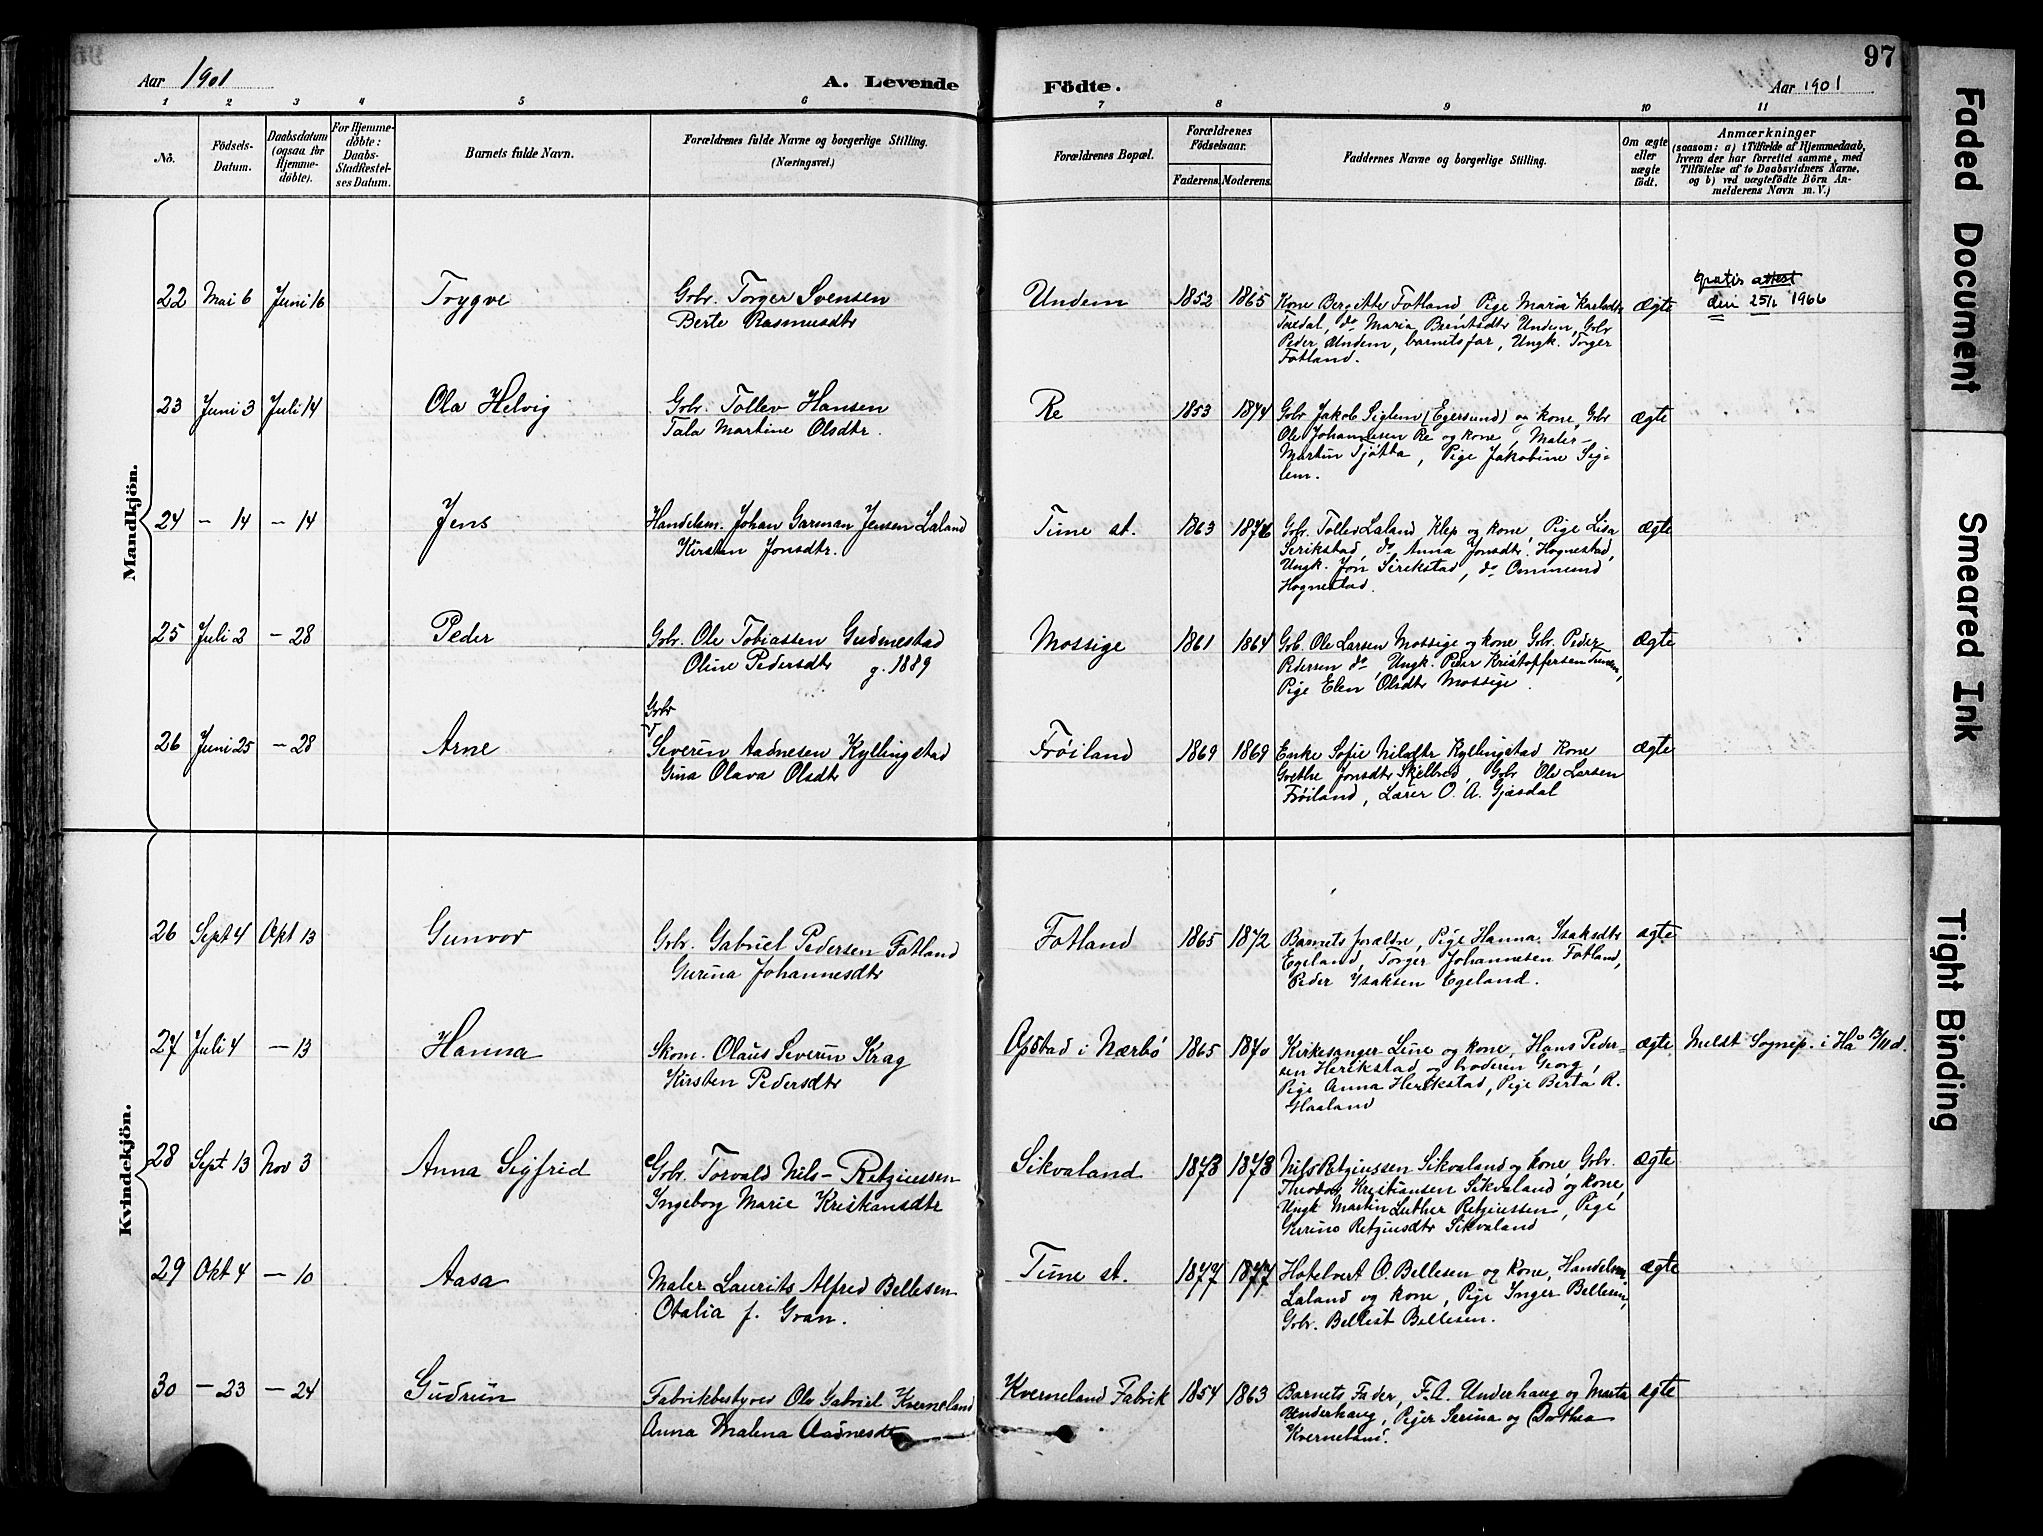 97
Aar 1901
A. Levende
Födte.
Aar 1901
1 2 3 4 5 6 7 8 9 10 11
No.
Födsels-
Datum.
Daabsdatum
(ogsaa for
Hjemme-
döbte).
For Hjemme-
döbte:
Daabs-
Stadfestel-
ses Datum.
Barnets fulde Navn.
Forældrenes fulde Navne og borgerlige Stilling.
(Næringsvei.)
Forældrenes Bopæl.
Forældrenes
Födselsaar.
Faderens. Moderens.
Faddernes Navne og borgerlige Stilling.
Om ægte
eller
uægte
födt.
Anmærkninger
(saasom: a) i Tilfælde af Hjemmedaab,
hvem der har forrettet samme, med
Tilföielse af to Daabsvidners Navne,
og b) ved uægtefödte Börn An-
melderens Navn m. V.)
Mandkjön.
22 Mai 6 Juni 16 Trygve
Gbr. Torger Svensen
Berte Rasmusdtr
Undem 1852 1865
Kone Bergitte Fotland, Pige Maria Karlsdtr
Toredal, do Maria Berntsdtr Undem, Gbr
Peder Undem, barnets far, Ungk. Torger
Fotland.
ægte
gratis attest
den 25/2 1966
23 Juni 3 Juli 14 Ola Helvig
Gbr. Tollev Hansen
Tala Martine Olsdtr.
Re 1853 1874
Gbr Jakob Siglem (Egersund) og kone, Gbr
Ole Johannesen Re og kone, Maler
Martin Tjøtta, Pige Jakobine Sig-
lem.
ægte
24 – 14 – 14 Jens
Handelsm. Johan Garman Jensen Laland
Kirsten Jonsdtr.
Time st. 1863 1876
Gbr. Tollev Laland, Klep og kone, Pige Lisa
Serikstad, do Anna Jonsdtr. Hognestad,
Ungk. Jon Sirekstad, do Ommund
Hognestad.
ægte
25 Juli 2 – 28 Peder
Gbr. Ole Tobiassen Gudmestad
Oline Pedersdtr g. 1889
Mossige 1861 1864
Gb. Ole Larsen Mossige og kone Gbr. Peder
Pedersen do, Ungk. Peder Kristoffersen
Pige Elen Olsdtr Mossige.
ægte
26 Juni 25 – 28 Arne
Gbr
Severin Aadnesen Kyllingstad
Gina Olava Olsdtr
Frøiland 1869 1869
Enke Sofie Nilsdtr Kyllingstad Kone
Grethe Jonsdtr Skjelbred, Gbr Ole Larsen
Frøiland, Lærer O. A. Gjæsdal
ægte
Kvindekjön.
26 Sept 4 Okt 13 Gunvor
Gbr. Gabriel Pedersen Fotland
Gurina Johannesdtr
Fotland 1865 1872
Barnets forældre, Pige Hanna Isaksdtr
Egeland, Torger Johannesen Fotland,
Peder Isaksen Egeland.
ægte
27 Juli 4 – 13 Hanna
Skom. Olaus Severin Krag
Kirsten Pedersdtr
Opstad i Nærbø 1865 1870
Kirkesanger Line og kone, Hans Peder-
sen Herikstad og broderen Georg,
Pige Anna Herikstad, Pige Berta R.
Haaland
ægte
Meldt Sognep. i Haa 13/11 d.
28 Sept 13 Nov 3 Anna Sigfrid
Gbr. Torvald Nils-Retziussen
Ingeborg Marie Kristiansdtr
Sikvaland 1873 1878
Nils Retziussen Sikvaland og kone, Gbr.
Theodor Kristiansen Sikvaland og kone,
Ungk Martin Luther Retziussen, Pige
Gurine Retziusdtr Sikvaland
ægte
29 Okt 4 – 10 Aasa
Maler Laurits Alfred Bellesen
Otalia f. Gran.
Time st. 1877 1877
Hotelvert O. Bellesen og kone, Handelsm.
Laland og kone, Pige Inger Bellesen,
Gbr. Bellest Bellesen.
ægte
30 – 23 – 24 Gudrun
Fabrikbestyrer Ole Gabriel Kverneland
Anna Malena Aadnesdtr
Kverneland Fabrik 1854 1863
Barnets Fader, F. A. Underhaug og Marta
Underhaug, Piger Serina og Dorthea
Kverneland.
ægte
Faded Document
Smeared Ink
Tight Binding